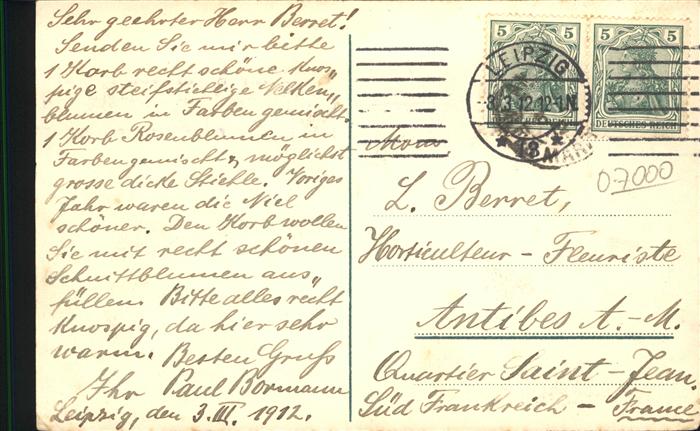 Sehr geehrter Herr Berret!
Senden Sie mir bitte
1 Korb recht schöne knos„
pige steifstielige Nelken„
blumen in Farben gemischt.
1 Korb Rosenblumen in
Farbengemischt, möglichst
grosse dicke Stiehle. Voriges
Jahr waren die Viel
schöner. Den Korb wollen
Sie mit recht schönen
Schnittblumen aus„
füllen. Bitte alles recht
knospig, da hier sehr
warm. Besten Gruß
Ihr Paul Bormann
Leipzig, den 3. III. 1912.
5 5 5 5
LEIPZIG
3.12.12-1.N
* 13 *
DEUTSCHES REICH
07000
L. Berret,
Horticulteur - Fleuriste
Antibes A.-M.
Quartier Saint-Jean
Süd Frankreich - France